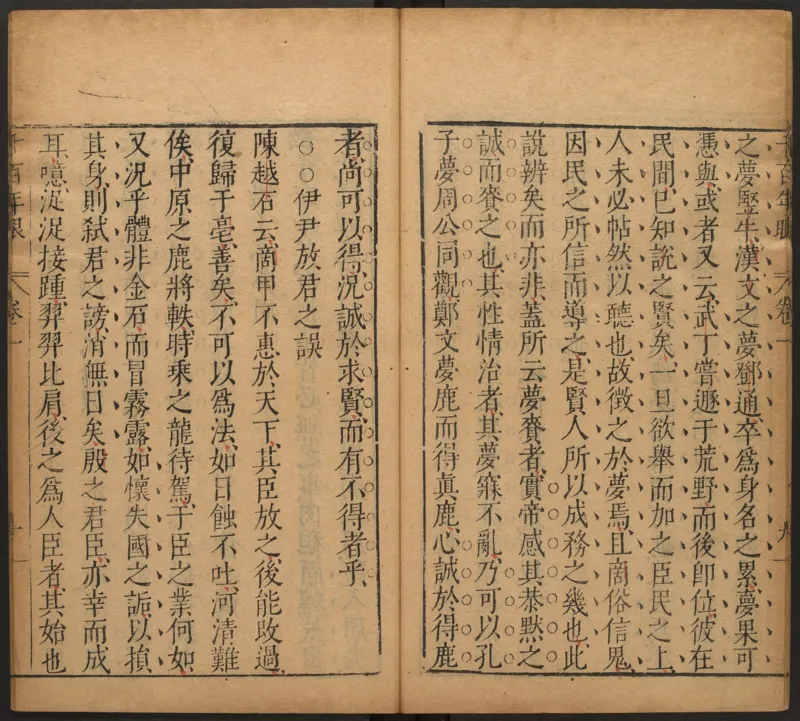 之夢豎牛漢文之夢鄧通卒爲身名之累夢果可
憑與或者又云武丁嘗遯于荒野而後卽位彼在
民間已知說之賢矣一旦欲舉而加之臣民之上
人未必帖然以聽也故徴之於夢焉且商俗信鬼
因民之所信而導之是賢人所以成務之幾也此
說辨矣而亦非蓋所云夢賚者實帝感其恭黙之
誠而賚之也其性情治者其夢寐不亂乃可以孔
子夢周公同觀鄭文夢鹿而得眞鹿心誠於得鹿
者尚可以得況誠於求賢而有不得者乎
○○伊尹放君之誤
陳越石云商甲不惠於天下其臣放之後能改過
復歸于亳善矣不可以爲法如日蝕不吐河清難
俟中原之鹿將軼時乘之龍待駕于臣之業何如
又況乎體非金石而冒霧露如懷失國之詬以損
其身則弑君之謗消無日矣殷之君臣亦幸而成
耳噫浞浞接踵羿羿比肩後之爲人臣者其始也
百年眼 卷一